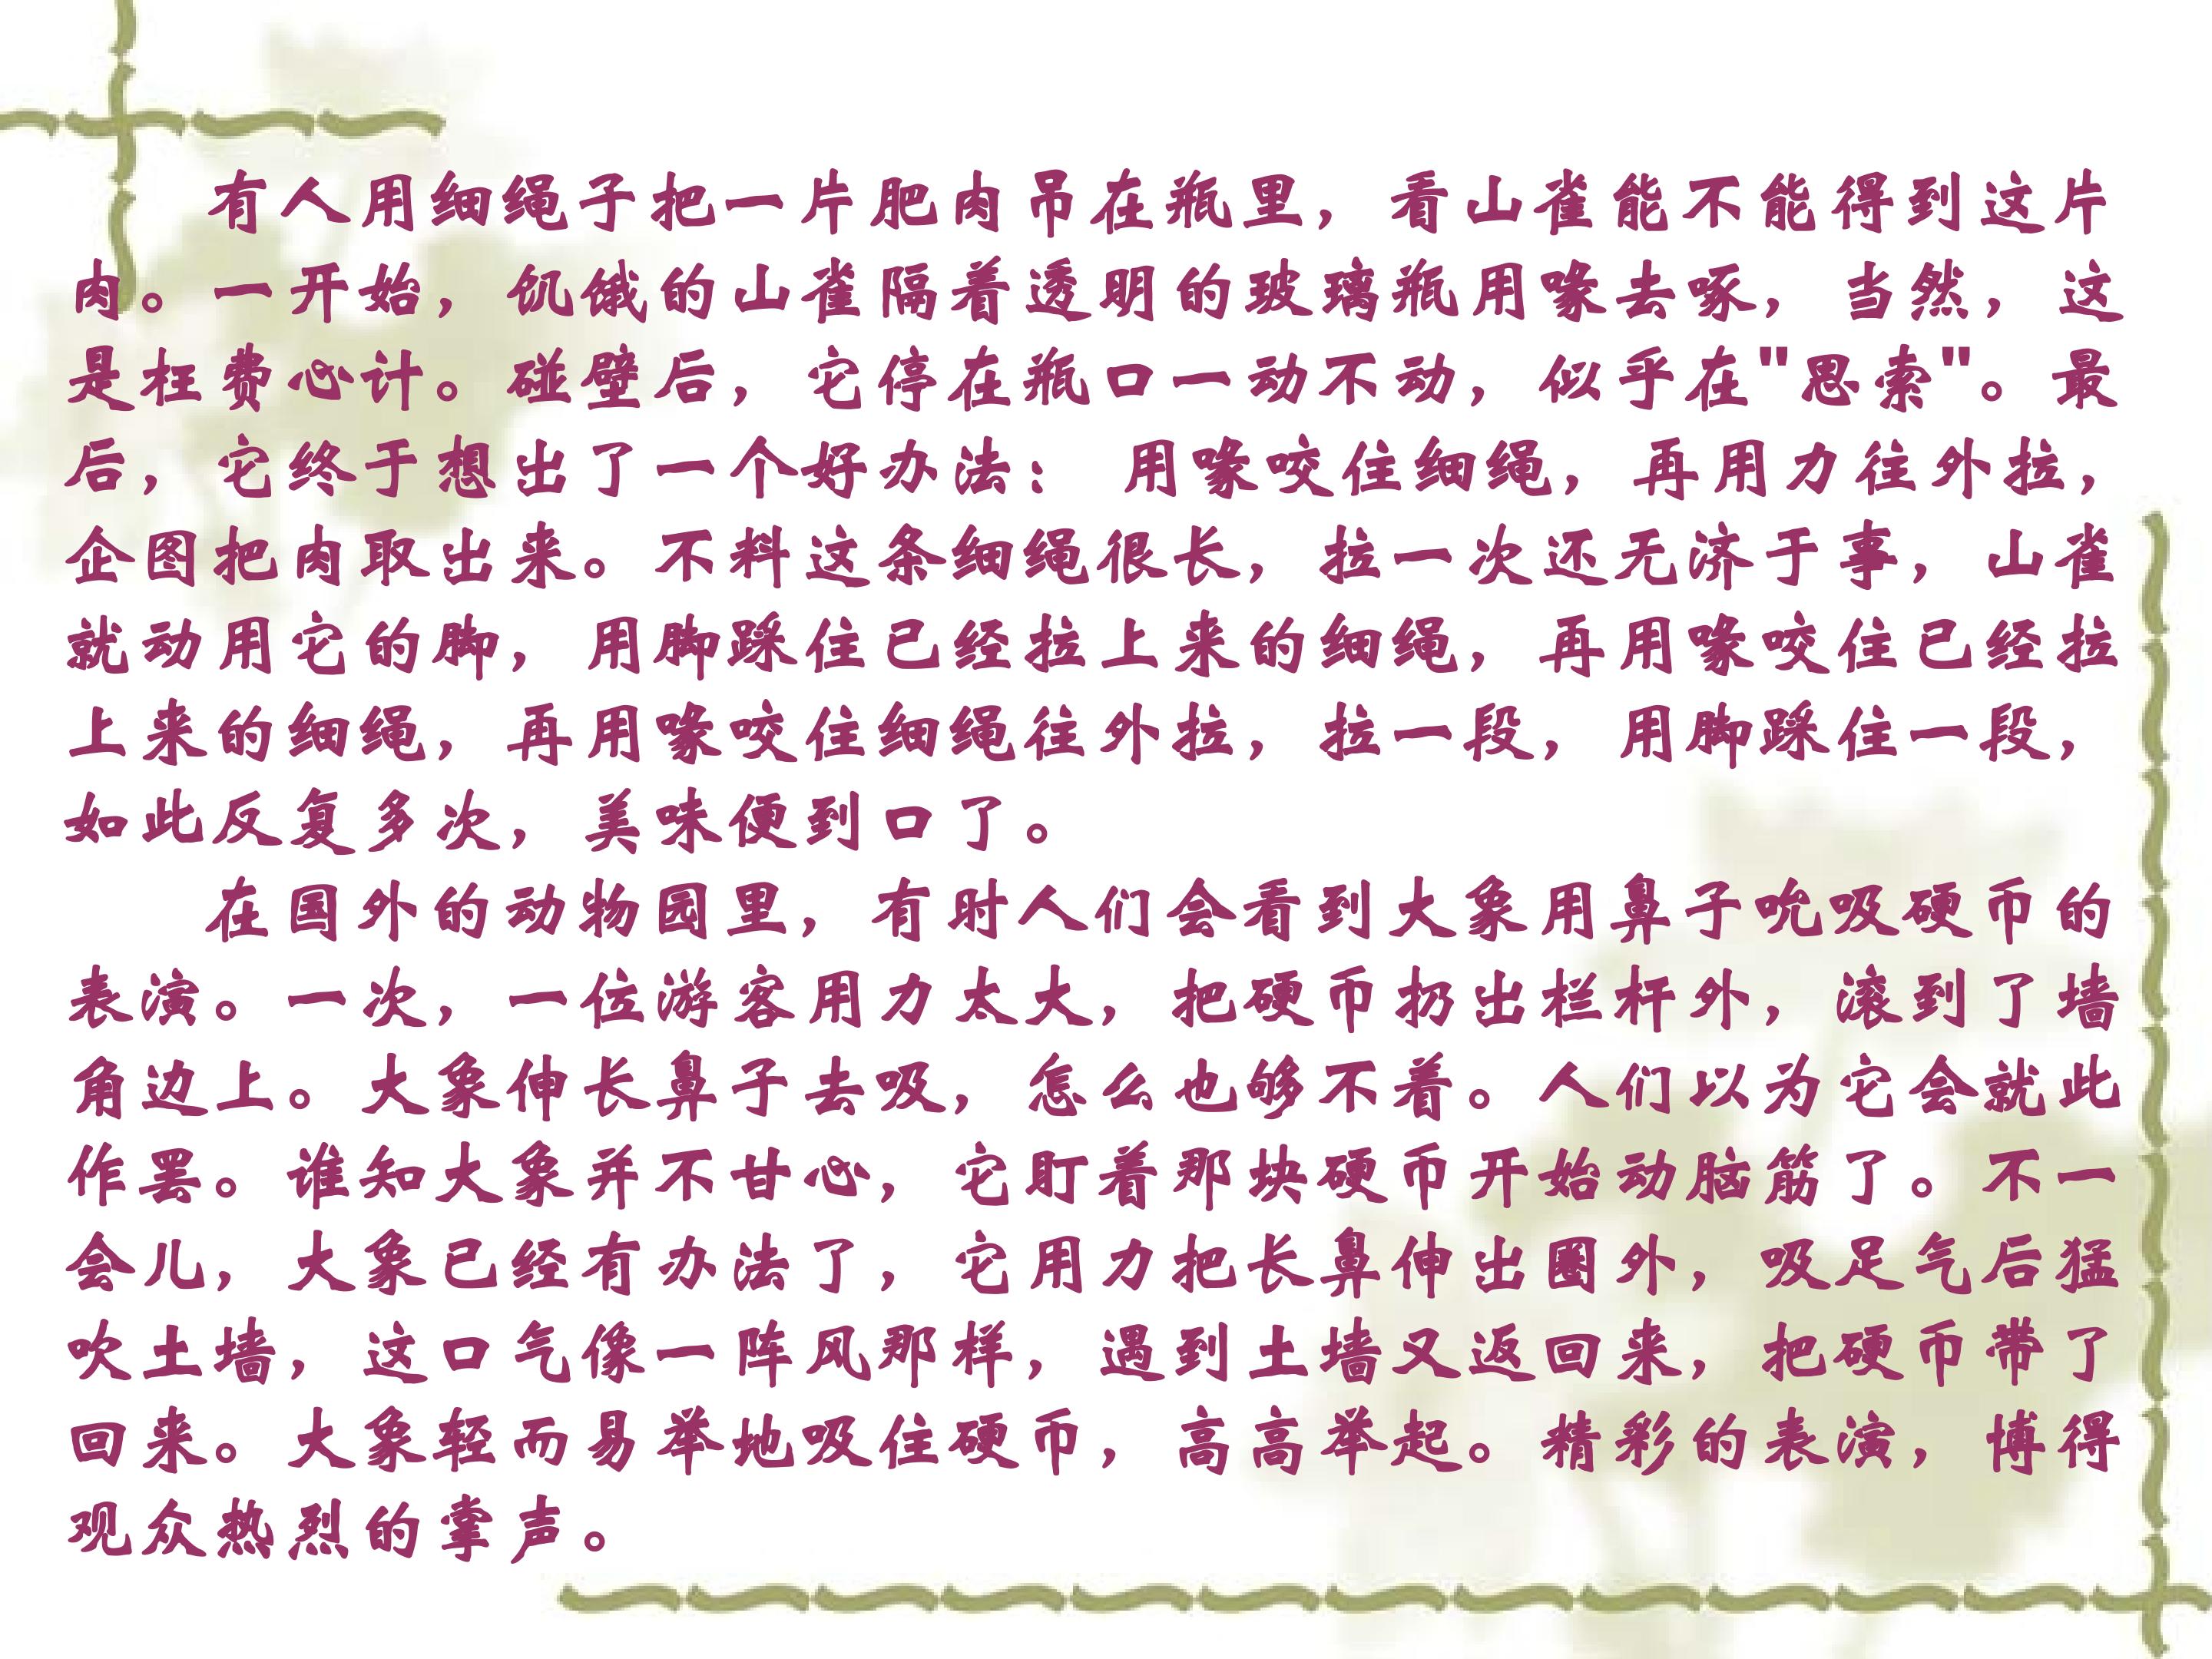 有人用细绳子把一片肥肉吊在瓶里，看山雀能不能得到这片
肉。一开始，饥饿的山雀隔着透明的玻璃瓶用喙去啄，当然，这
是枉费心计。碰壁后，它停在瓶口一动不动，似乎在"思索"。最
后，它终于想出了一个好办法： 用喙咬住细绳，再用力往外拉，
企图把肉取出来。不料这条细绳很长，拉一次还无济于事，山雀
就动用它的脚，用脚踩住已经拉上来的细绳，再用喙咬住已经拉
上来的细绳，再用喙咬住细绳往外拉，拉一段，用脚踩住一段，
如此反复多次，美味便到口了。
在国外的动物园里，有时人们会看到大象用鼻子吮吸硬币的
表演。一次，一位游客用力太大，把硬币扔出栏杆外，滚到了墙
角边上。大象伸长鼻子去吸，怎么也够不着。人们以为它会就此
作罢。谁知大象并不甘心，它盯着那块硬币开始动脑筋了。不一
会儿，大象已经有办法了，它用力把长鼻伸出圈外，吸足气后猛
吹土墙，这口气像一阵风那样，遇到土墙又返回来，把硬币带了
回来。大象轻而易举地吸住硬币，高高举起。精彩的表演，博得
观众热烈的掌声。